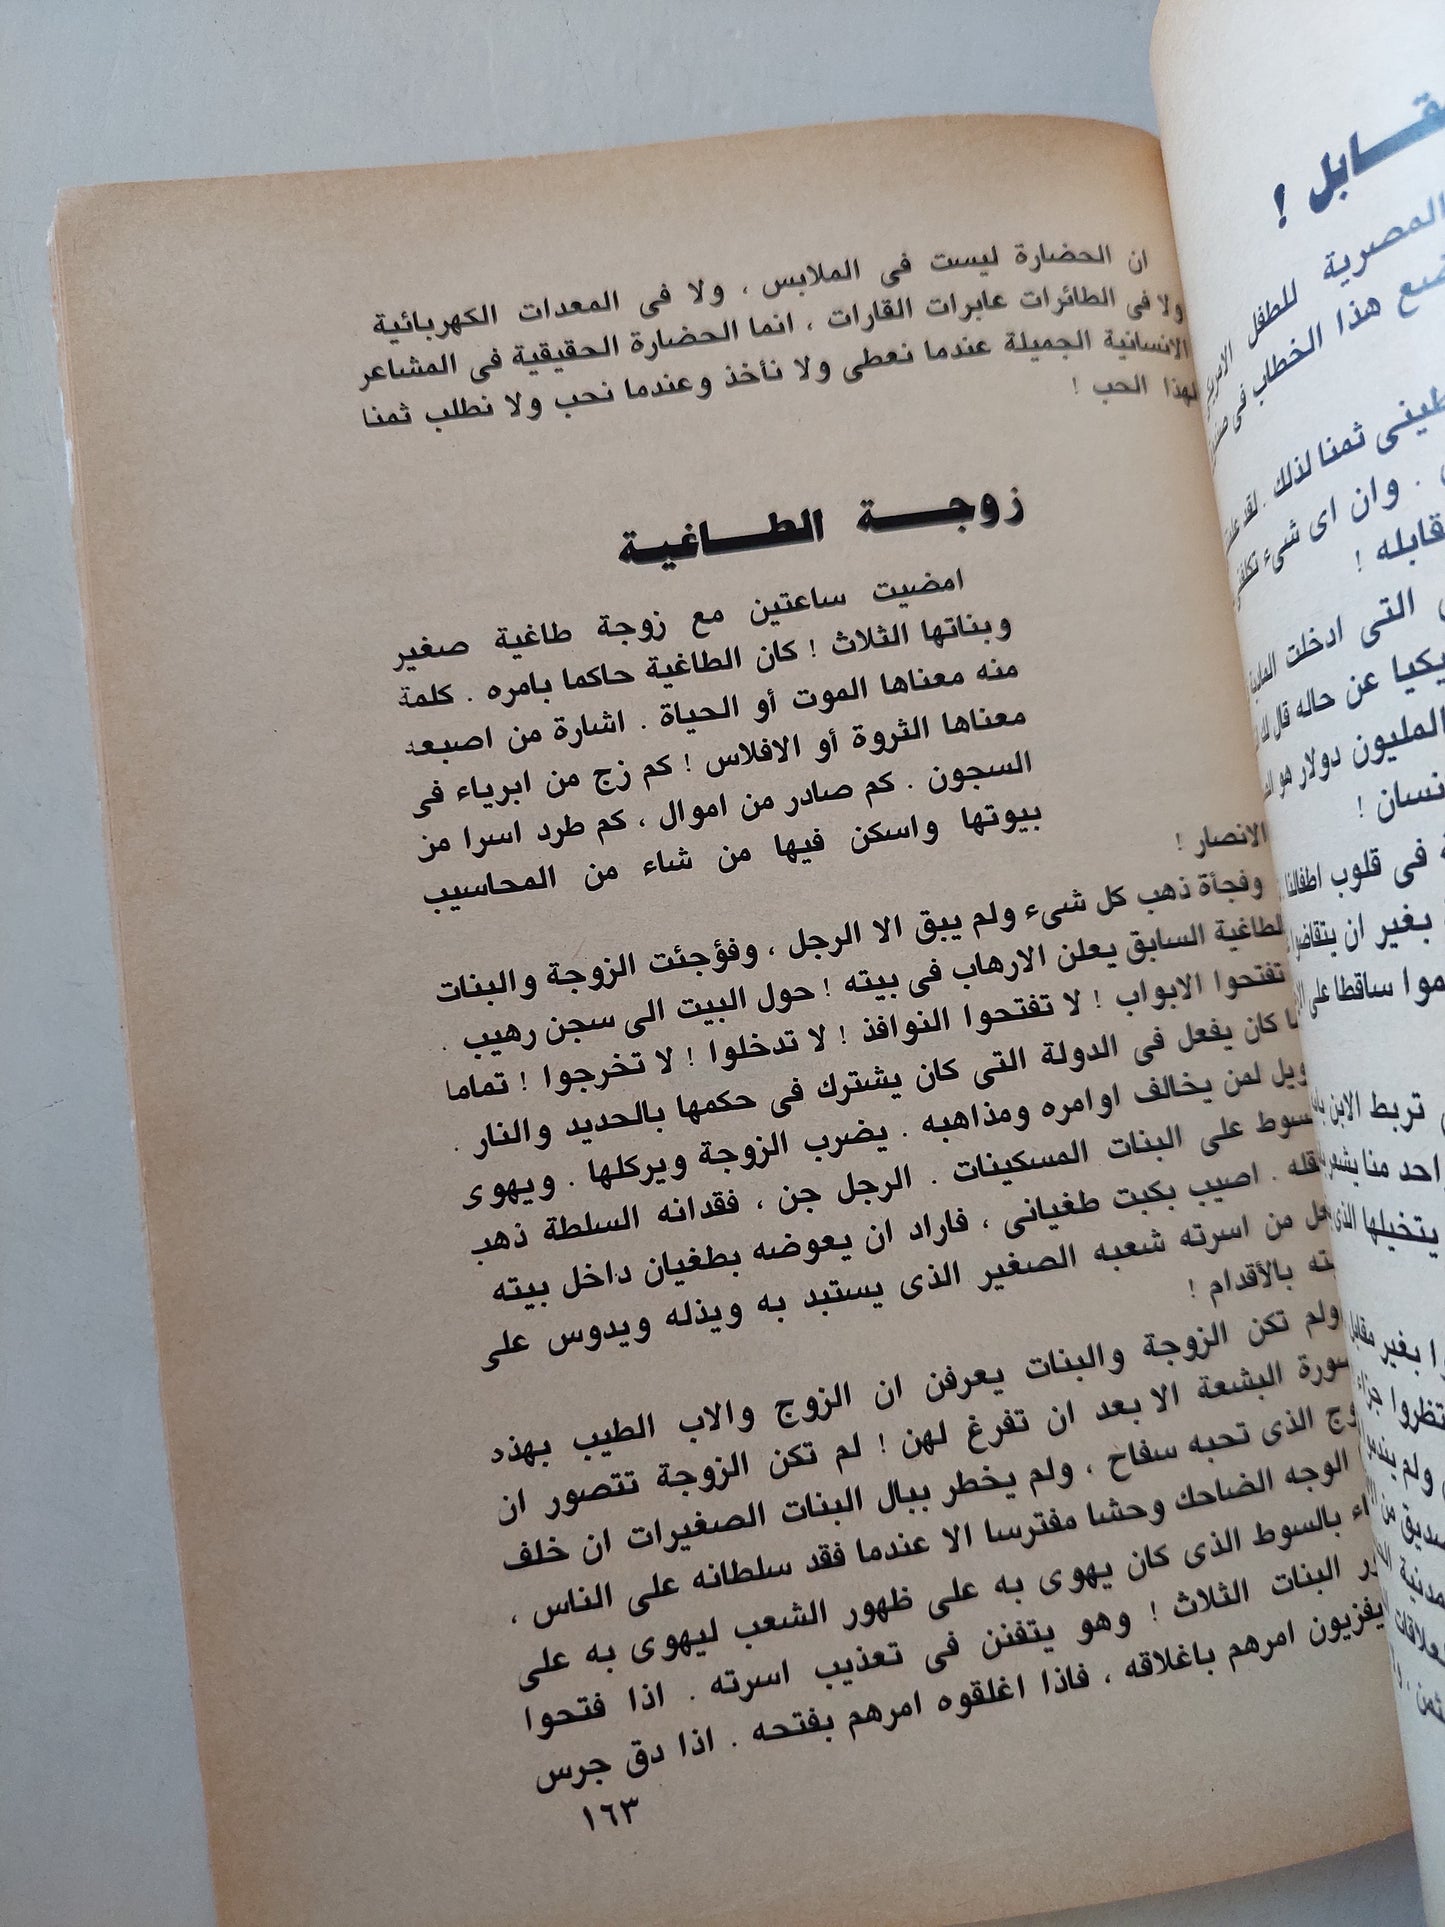 ان الحضارة ليست فى الملابس ، ولا فى المعدات الكهربائية
ولا فى الطائرات عابرات القارات ، انما الحضارة الحقيقية فى المشاعر
الانسانية الجميلة عندما نعطى ولا نأخذ وعندما نحب ولا نطلب ثمنا
لهذا الحب !
زوجة الطاغية
امضيت ساعتين مع زوجة طاغية صغير
وبناتها الثلاث ! كان الطاغية حاكما بامره . كلمة
منه معناها الموت أو الحياة . اشارة من اصبعه
معناها الثروة أو الافلاس ! كم زج من ابرياء فى
السجون . كم صادر من اموال ، كم طرد اسرا من
بيوتها واسكن فيها من شاء من المحاسيب
الانصار !
وفجأة ذهب كل شىء ولم يبق الا الرجل ، وفؤجئت الزوجة والبنات
الطاغية السابق يعلن الارهاب فى بيته ! حول البيت الى سجن رهيب .
تفتحوا الابواب ! لا تفتحوا النوافذ ! لا تدخلوا ! لا تخرجوا ! تماما
كان يفعل فى الدولة التى كان يشترك فى حكمها بالحديد والنار .
ويل لمن يخالف اوامره ومذاهبه . يضرب الزوجة ويركلها . ويهوى
سوط على البنات المسكينات . الرجل جن ، فقدانه السلطة ذهب
قله . اصيب بكبت طغيانى ، فاراد ان يعوضه بطغيان داخل بيته
عل من اسرته شعبه الصغير الذى يستبد به ويذله ويدوس على
ته بالأقدام !
ولم تكن الزوجة والبنات يعرفن ان الزوج والاب الطيب بهذه
سورة البشعة الا بعد ان تفرغ لهن ! لم تكن الزوجة تتصور ان
وج الذى تحبه سفاح ، ولم يخطر ببال البنات الصغيرات ان خلف
الوجه الضاحك وحشا مفترسا الا عندما فقد سلطانه على الناس ،
اء بالسوط الذى كان يهوى به على ظهور الشعب ليهوى به على
ور البنات الثلاث ! وهو يتفنن فى تعذيب اسرته . اذا فتحوا
يفزيون امرهم باغلاقه ، فاذا اغلقوه امرهم بفتحه . اذا دق جرس
١٦٣
قابل !
المصرية للطفل
ضع هذا الخطاب فى
طينى ثمنا لذلك . لقد
. وان اى شىء
قابله !
التى ادخلت
يكيا عن حاله قال
المليون دولار هو
نسان !
فى قلوب اطفالنا
بغير ان يتقاضوا
موا ساقطا على
تربط الابن
احد منا يشعر
يتخيلها الذى
وا بغير مقابل
تظروا جزاء
ولم يندم
صديق من
مدنية
علاقات
ثمن .